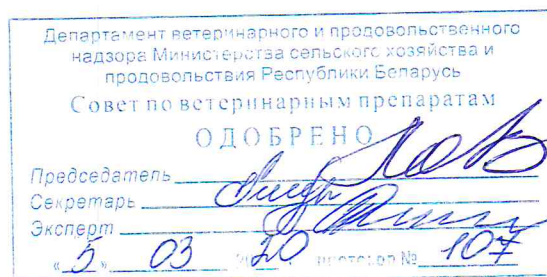 Департамент ветеринарного и продовольственного
надзора Министерства сельского хозяйства и
продовольствия Республики Беларусь
Совет по ветеринарным препаратам
ОДОБРЕНО
Председатель
Секретарь
Эксперт
«5» 03 20 протокол № 107